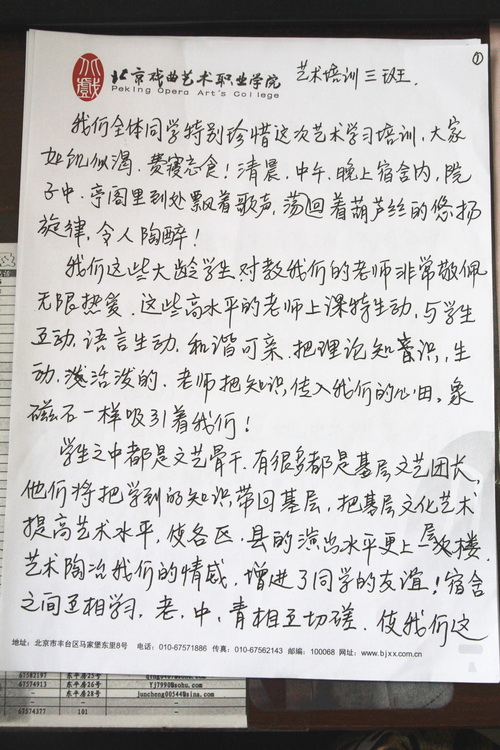 ①
北戏
北京戏曲艺术职业学院
Peking Opera Art's College
艺术培训三班.
我们全体同学特别珍惜这次艺术学习培训,大家
如饥似渴.费寝忘食!清晨.中午.晚上宿舍内,院
子中.亭阁里到处飘着歌声,荡回着葫芦丝的悠扬
旋律,令人陶醉!
我们这些大龄学生对教我们的老师非常敬佩
无限热爱.这些高水平的老师上课特生动,与学生
互动,语言生动.和谐可亲.把理论知识,生
动,活泼的.老师把知识传入我们的心田,象
磁石一样吸引着我们!
学生之中都是文艺骨干.有很多都是基层文艺团长,
他们将把学到的知识带回基层,把基层文化艺术
提高艺术水平,使各区.县的演出水平更上一层楼.
艺术陶冶我们的情感,增进了同学的友谊!宿舍
之间互相学习.老.中.青相互切磋.使我们这
地址:北京市丰台区马家堡东里8号 电话:010-67571886 传真:010-67562143 邮编:100068 网址:www.bjxx.com.cn
67582197 东平房25号
67574913 东平房26号 Yj7990@sohu.com
东平房28号 juncheng00544@sina.com
67574377 101